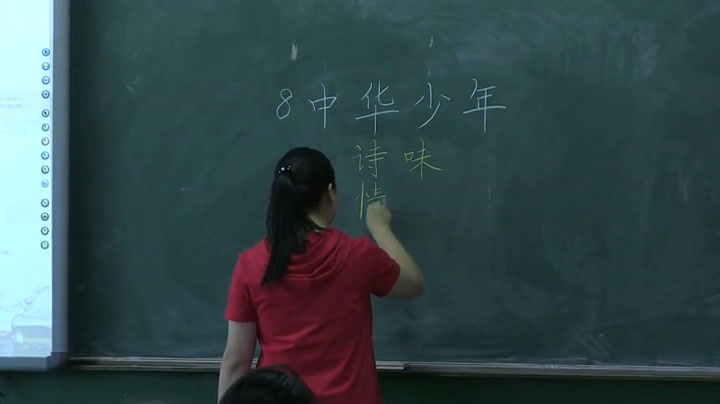 8 中华少年
诗味
情